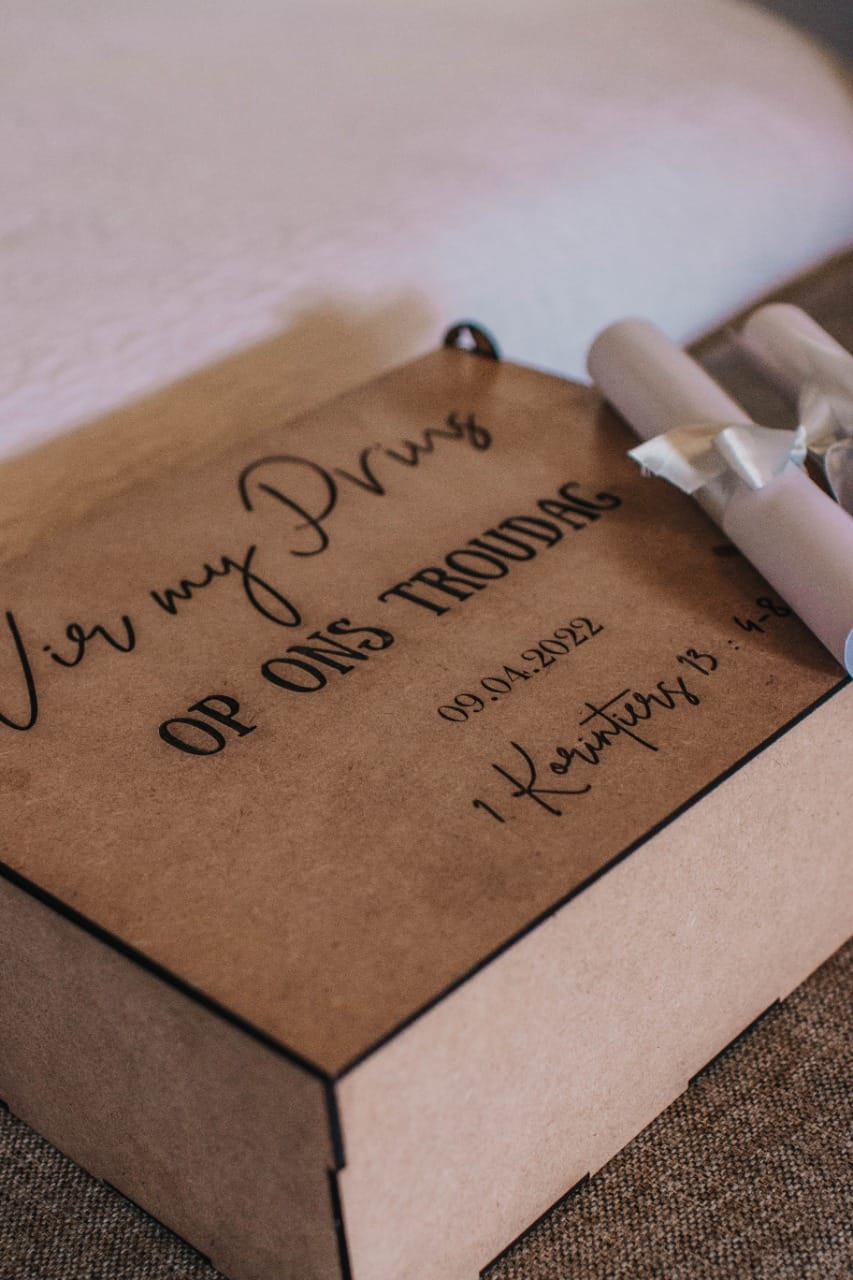 Vir my Prins
OP ONS TROUDAG
09.04.2022
1 Korintiers 13 : 4-8